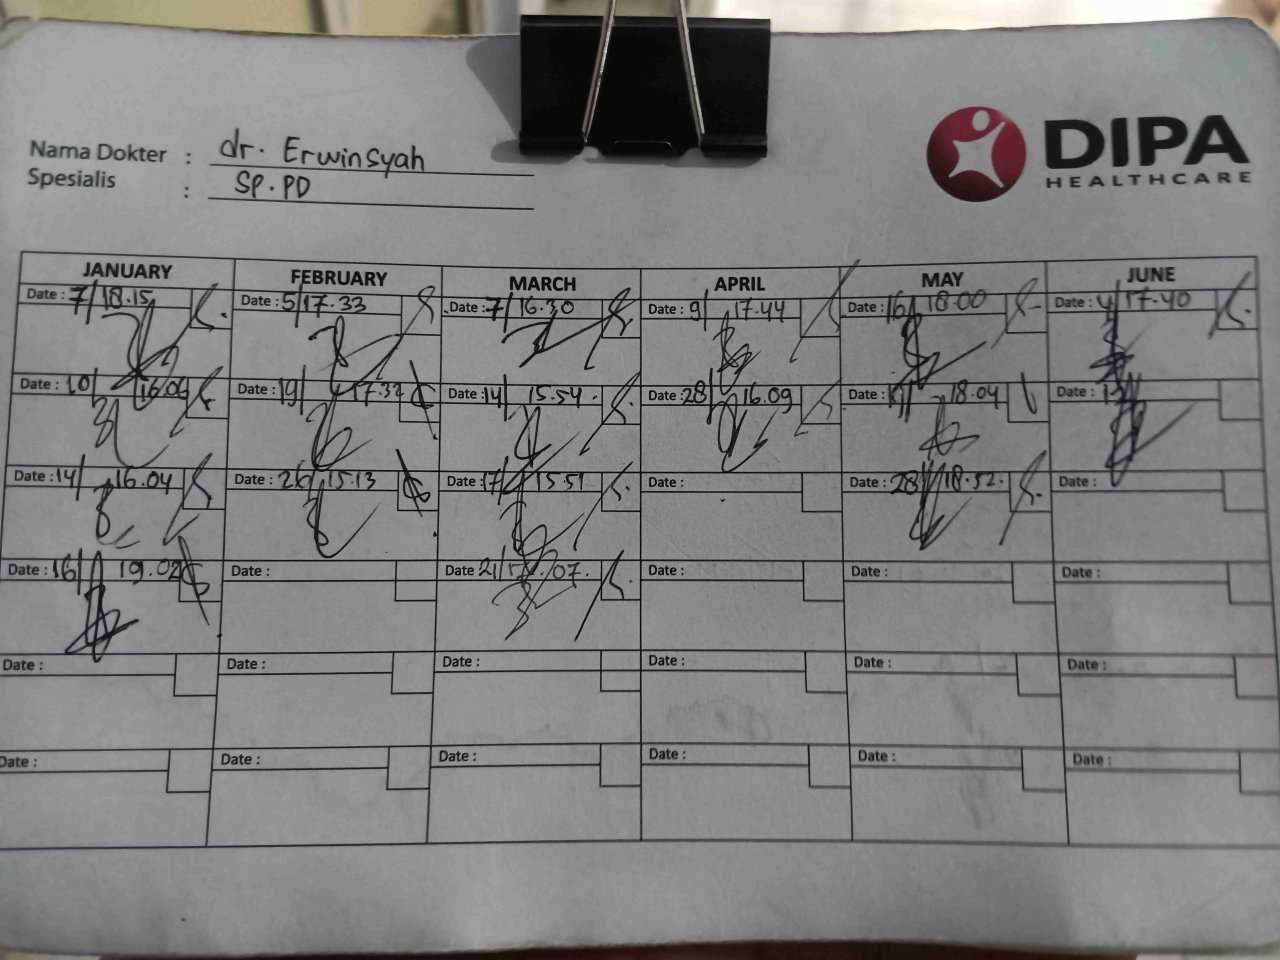 Nama Dokter : dr. Erwinsyah
Spesialis : Sp.PD
DIPA
HEALTHCARE
JANUARY FEBRUARY MARCH APRIL MAY JUNE
Date : 7/18.15 Date : 5/17.33 Date : 7/16.30 Date : 9/ 17.44 Date : 16/ 18.00 Date : 4/17.40
Date : 10/ 16.06 Date : 19/ 17.32 Date : 14/ 15.54 Date : 28/ 16.09 Date : 18.04 Date :
Date : 14/ 16.04 Date : 26/15.13 Date : 17/15.51 Date : Date : 28/18.52 Date :
Date : 16/ 19.02 Date : Date 21/17.07 Date : Date : Date :
Date : Date : Date : Date : Date : Date :
Date : Date : Date : Date : Date : Date :